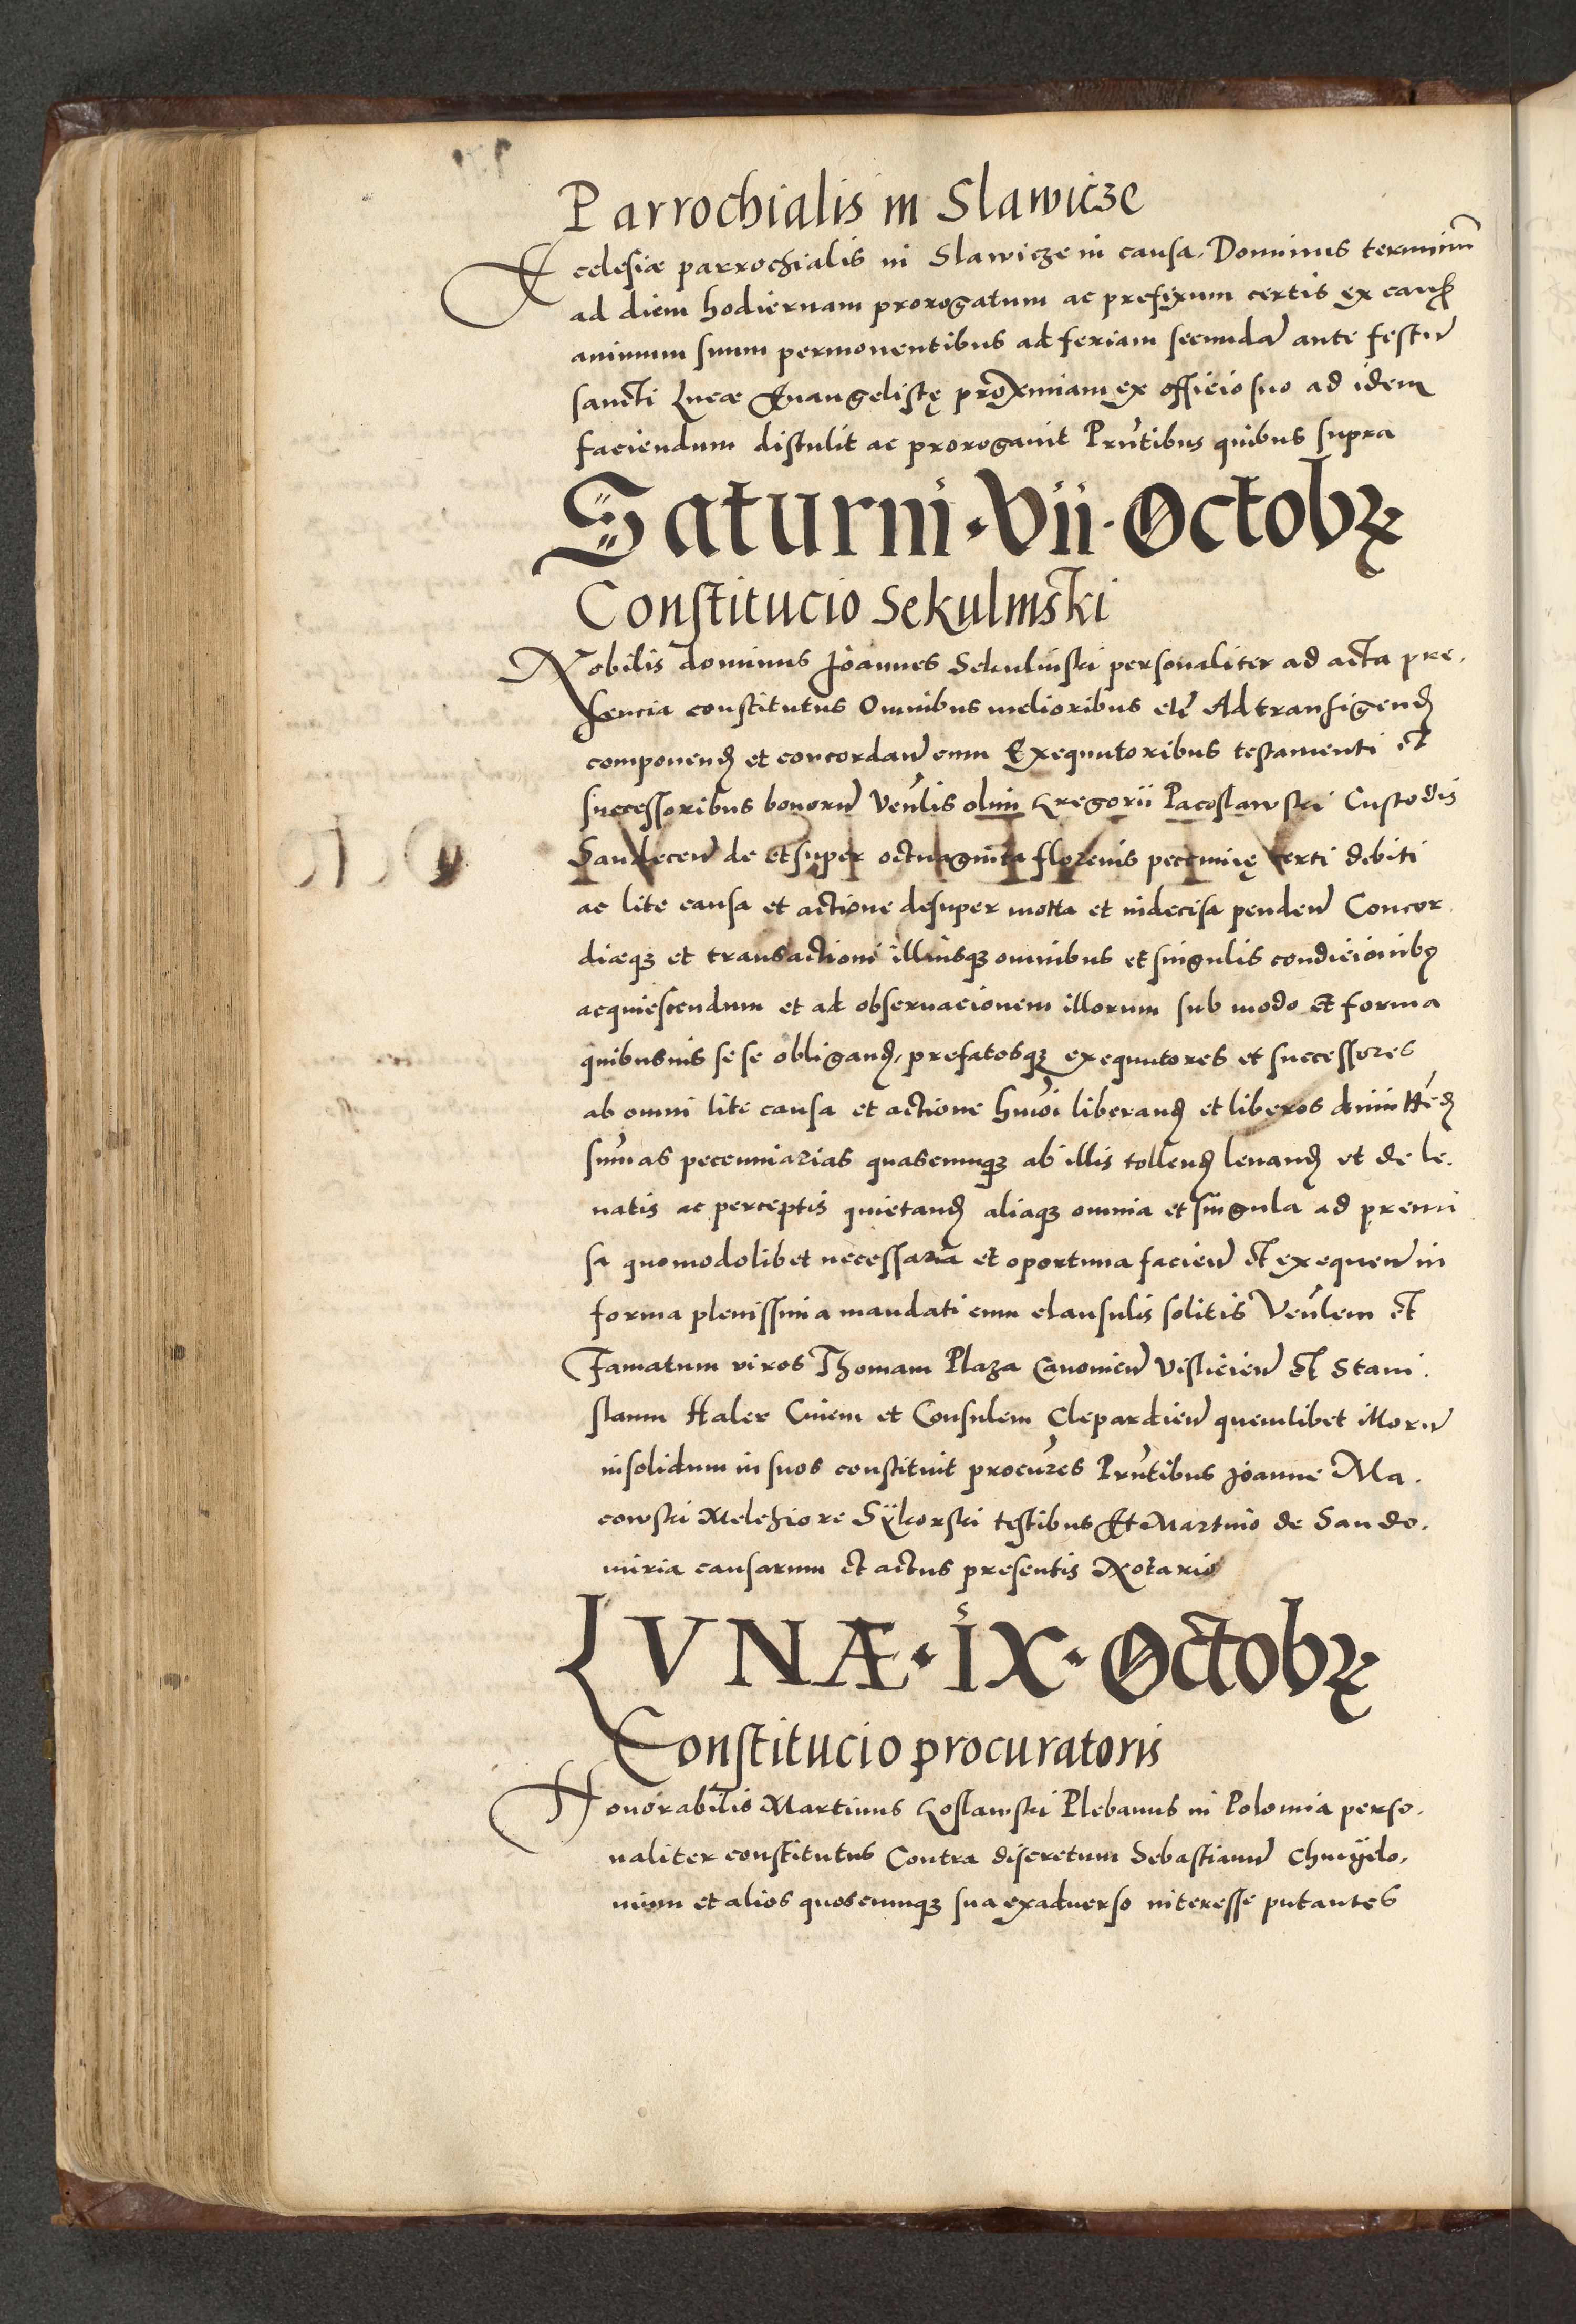 Parrochialis in Slawicze
Ecclesiæ parrochialis in Slawicze in causa. Dominus terminũ
ad diem hodiernam prorogatum ac prefixum certis ex cauß
animum suum permouentibus ad feriam secundã ante festũ
sancti Lucæ Euangelistę proximam ex officio suo ad idem
faciendum distulit ac prorogauit Prñtibus quibus supra
Saturni · Vii · Octobꝶ
Constitucio Sekulinski
Nobilis dominus Joannes Sekulinski personaliter ad acta pre.
sencia constitutus Omnibus melioribus etc̃ Ad transigendꝭ
componendꝭ et concordan̄ cum Exequutoribus testamenti et
successoribus bonorũ Veñlis olim Gregorii Pacoslawski Custodis
Sandecen̄ de et super octuaginta florenis pecunię certi debiti
ac lite causa et actione desuper motta et indecisa penden̄ Concor
diæqꝫ et transactioni illiusqꝫ omnibus et singulis condicionibꝰ
acquiescendum et ad obseruacionem illorum sub modo et forma
quibusuis sese obligandꝭ, prefatosqꝫ exequutores et successores
ab omni lite causa et actione hm̃oi liberandꝭ et liberos dimittẽdꝭ
sum̃as pecuniarias quascumqꝫ ab illis tollendꝭ leuandꝭ et de le.
uatis ac perceptis quietandꝭ aliaqꝫ omnia et singula ad premi
sa quomodolibet necessaria et oportuna facien̄ et exequen̄ in
forma plenissima mandati cum clausulis solitis Veñlem et
Famatum viros Thomam Plaza Canonicũ Vislicien̄ et Stani.
slaum Haler Ciuem et Consulem Clepardien̄ quemlibet illorũ
insolidum in suos constituit procũres Prñtibus Joanne Ma.
cowski Melchiore Sÿkorski testibus Et Martino de Sando.
miria causarum et actus presentis Notario
LVNÆ · IX · Octobꝶ
Constitucio procuratoris
Honorabilis Martinus Goslawski Plebanus in Polomia perso.
naliter constitutus Contra discretum Sebastianũ Chmÿelo.
nium et alios quoscumqꝫ sua exaduerso interesse putantes